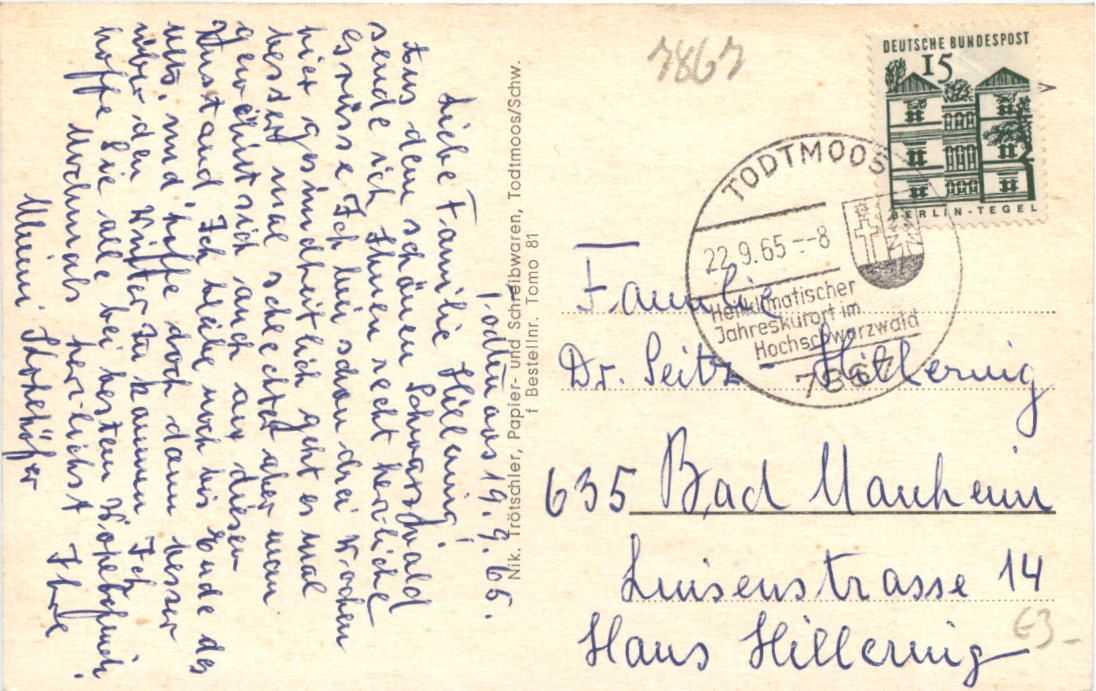 Todtmoos 19.9.65.
Liebe Familie Hillernig!
Aus dem schönen Schwarzwald
sende ich Ihnen recht herzliche
Grüsse Ich bin schon drei Wochen
hier gesundheitlich geht es mal
besser mal schlechter aber man
gewöhnt sich auch an diesen
Zustand. Ich bleibe noch bis Ende des
und hoffe doch dann besser
über den Winter zu kommen Ich
hoffe Sie alle bei bestem
Nochmals herzlichst Ihre
Nik. Trötschler, Papier- und Schreibwaren, Todtmoos/Schw.
f Bestellnr. Tomo 81
7867
DEUTSCHE BUNDESPOST
15
BERLIN-TEGEL
TODTMOOS
22.9.65--8
Heilklimatischer
Jahreskurort im
Hochschwarzwald
7867
Familie
Dr. Seitz Hillernig
635 Bad Nauheim
Luisenstrasse 14
Haus Hillernig